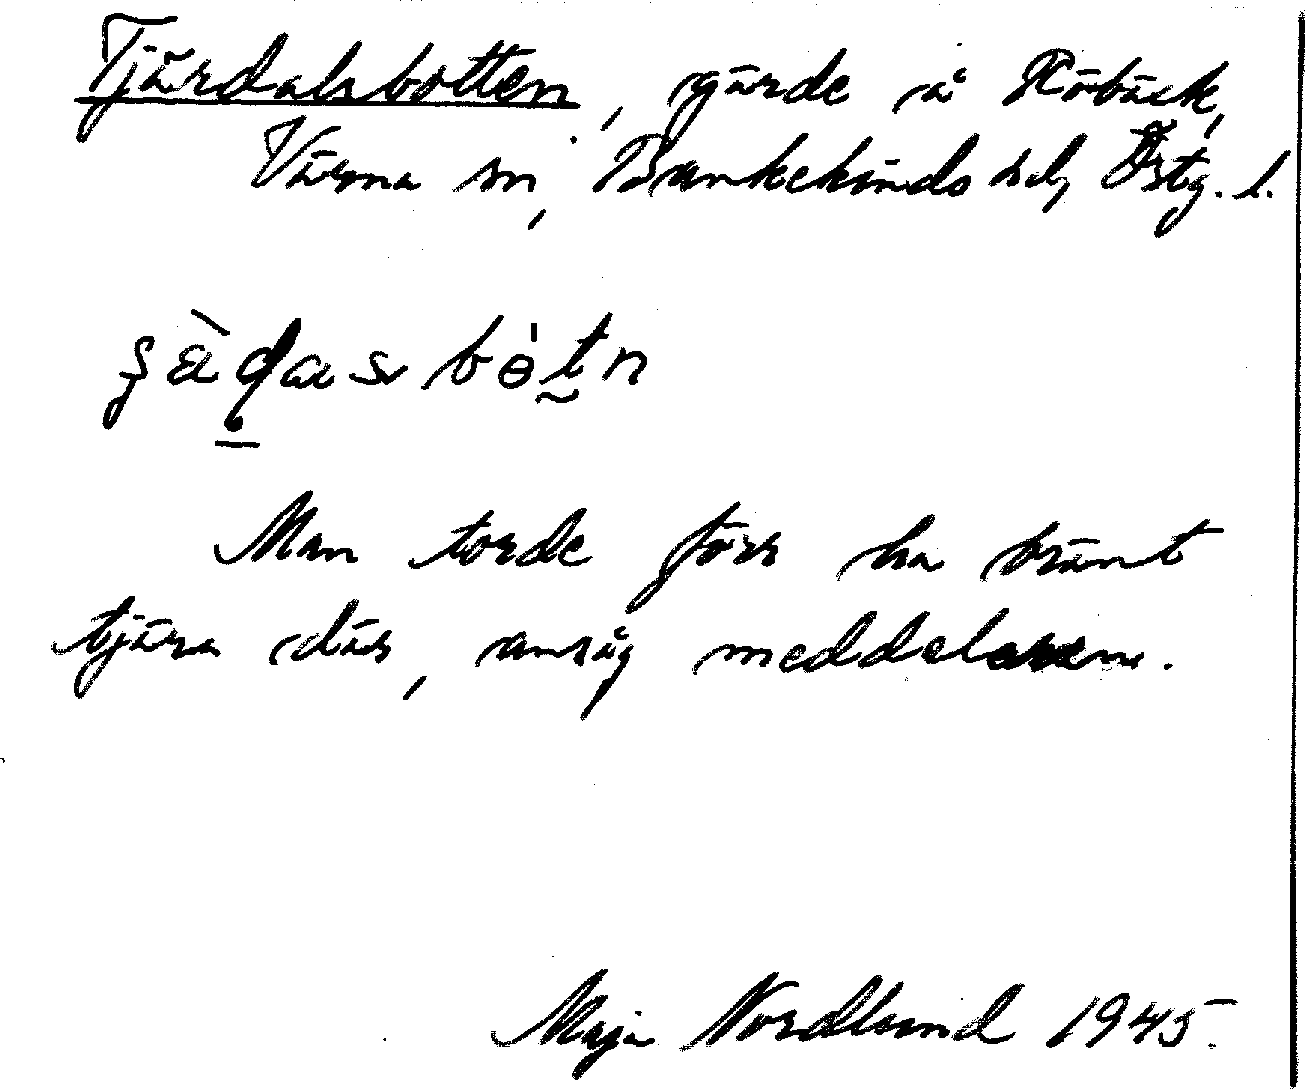 Tjärdalsbotten, gärde å Röbäck,
Värna sn, Bankekinds hd, Östg. l.
Man torde förr ha bränt
tjära där, ansåg meddelaren.
Maja Nordlund 1945.